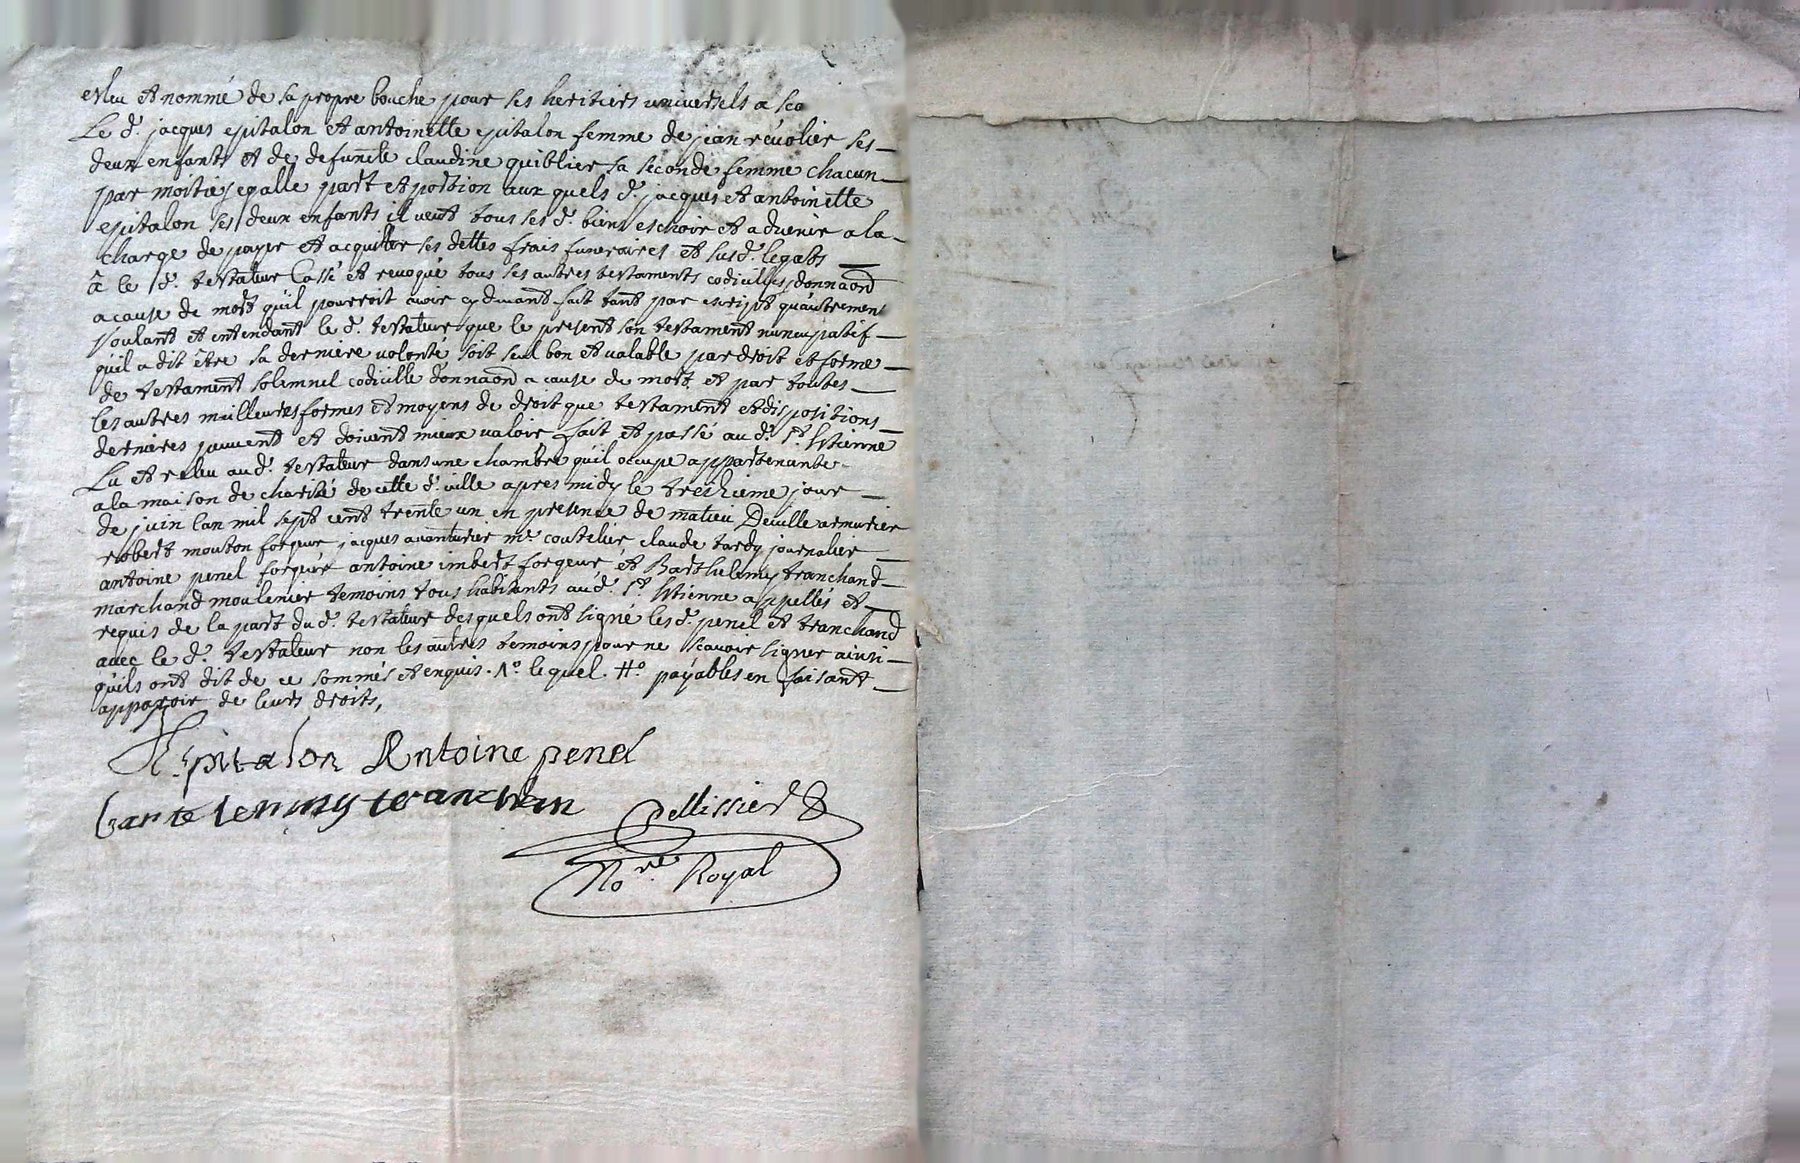 esleu et nommé de sa propre bouche pour ses heritiers universels a sca
Le d. jacques epitalon et antoinette epitalon femme de jean revolier ses
deux enfants et de defuncte claudine quiblier sa seconde femme chacun
par moitiez egalle part et portion aux quels d. jacques et antoinette
epitalon ses deux enfants il veut tous ses d. biens eschoir et advenir a la
charge de payer et acquitter ses dettes frais funeraires et susd. legats
â le d. testateur Cassé et revoqué tous ses autres testaments codicilles donnaõn
a cause de mort qu'il pourroit avoir cy devant fait tant par escript qu'autrement
voulant et entendant le d. testateur que le present son testament nuncupatif
qu'il a dit être sa derniere volonté soit seul bon et valable par droit et forme
de testament solemnel codicille donnaõn a cause de mort et par toutes
les autres meilleures formes et moyens de droit que testament et dispositions
dernieres peuvent et doivent mieux valoir fait et passé au d. St. Estienne
Lu et releu au d. testateur dans une chambre qu'il occupe appartenante
a la maison de charité de cette d. ville apres midy le treizieme jour
de juin lan mil sept cent trente un en presence de matieu Deville armurier
robert mouton forgeur jacques avanturier me. coutelier claude tardy journalier
antoine penel forgeur antoine imbert forgeur et Barthelemy tranchand
marchand moulinier temoins tous habitants aud. St. Estienne appellés et
requis de la part du d. testateur desquels ont signé les d. penel et tranchand
avec le d. testateur non les autres temoins pour ne scavoir signer ainsi
qu'ils ont dit de ce sommés et enquis. No. lequel. #o. payables en faisant
apparoir de leurs droits,
Epitalon Antoine penel
bartelemy tranchan
Pellissier
Nore. Royal